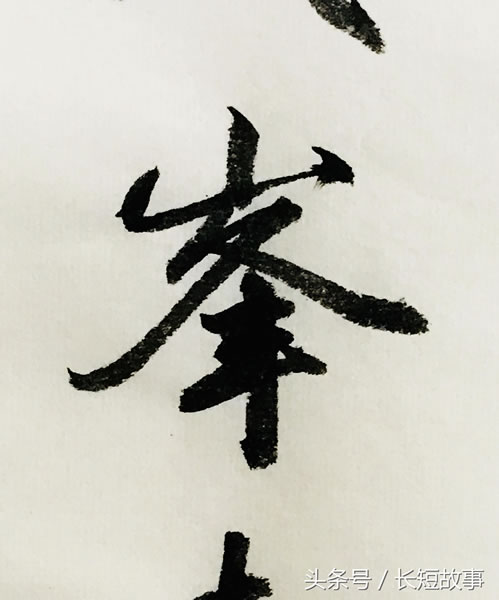 峯
头条号 / 长短故事